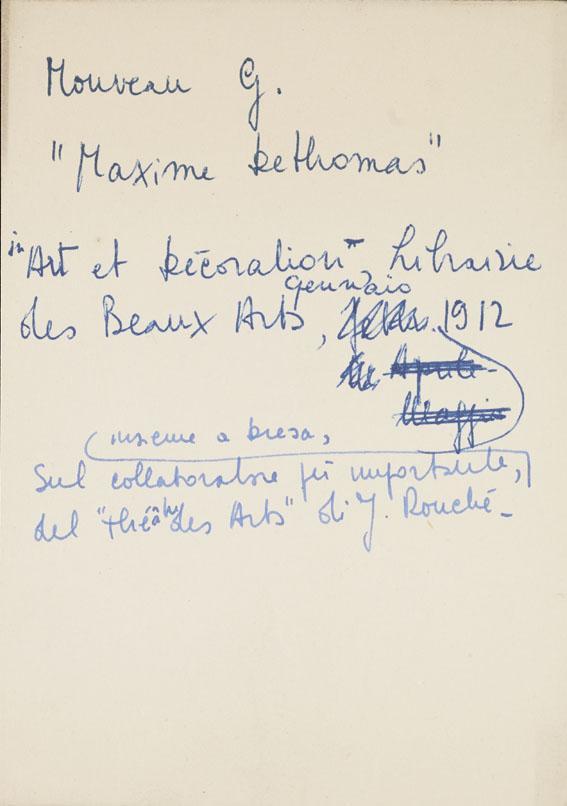 Mouveau G.
"Maxime Dethomas"
in "Art et Décoration", Librairie
Gennaio
des Beaux Arts, 1912
Aprile-
Maggio
(insieme a Dresa,
Sul collaboratore più importante,
del "théâtre des Arts" di J. Rouché_